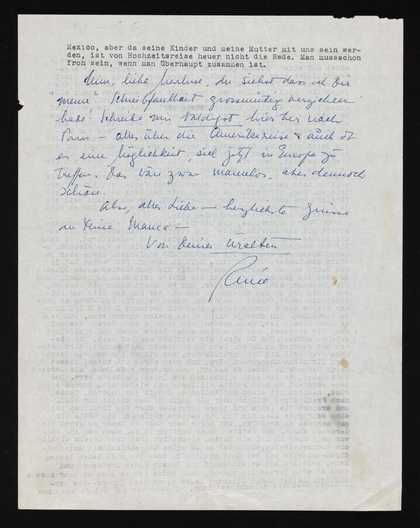 Mexico, aber da seine Kinder und meine Mutter mit uns sein wer-
den, ist von Hochzeitsreise heuer nicht die Rede. Man mussschon
froh sein, wenn man überhaupt zusammen ist.
Nun, liebe , du siehst dass ich Dir
"meine" Schreibfaulheit grossmütig verziehen
habe! Schreibe mir baldigst hier her nach
Paris – alles über die Amerikareise & auch ob
es eine Möglichkeit, sich jetzt in Europa zu
treffen. Das wär zwar , aber dennoch
schön.
Also, alles Liebe – herzlichste Grüsse
an Deine –
Von Deiner Uralten